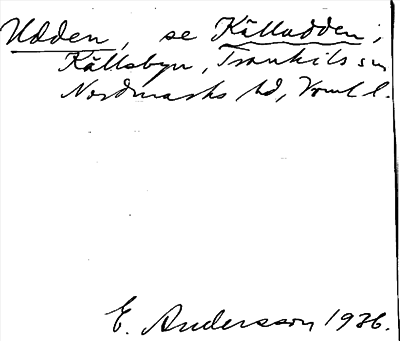 Udden, se Källudden;
Källsbyn, Trankils sn
Nordmarks hd, Vrml l.
E. Andersson 1936.